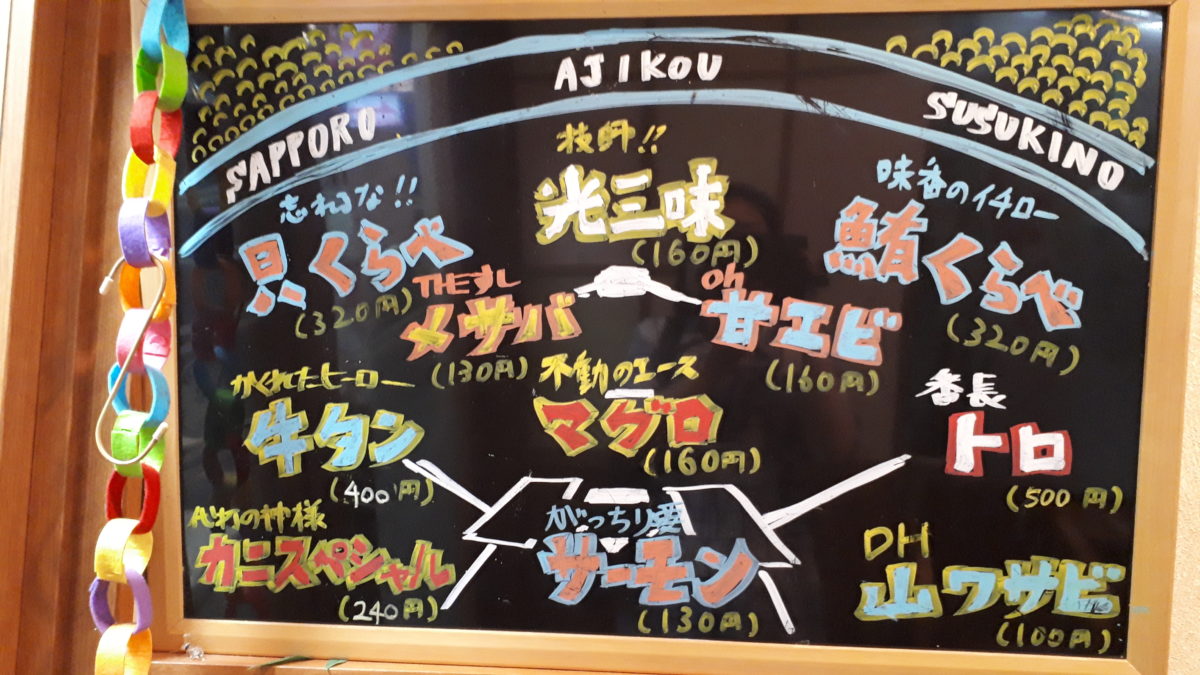 AJIKOU
SAPPORO
SUSUKINO
技師!!
光三味
(160円)
忘れるな!!
貝くらべ
(320円)
味香のイチロー
鮪くらべ
(320円)
THEすし
メサバ
(130円)
Oh
甘エビ
(160円)
かくれたヒーロー
牛タン
(400円)
不動のエース
マグロ
(160円)
番長
トロ
(500円)
代打の神様
カニスペシャル
(240円)
がっちり愛
サーモン
(130円)
DH
山ワサビ
(100円)